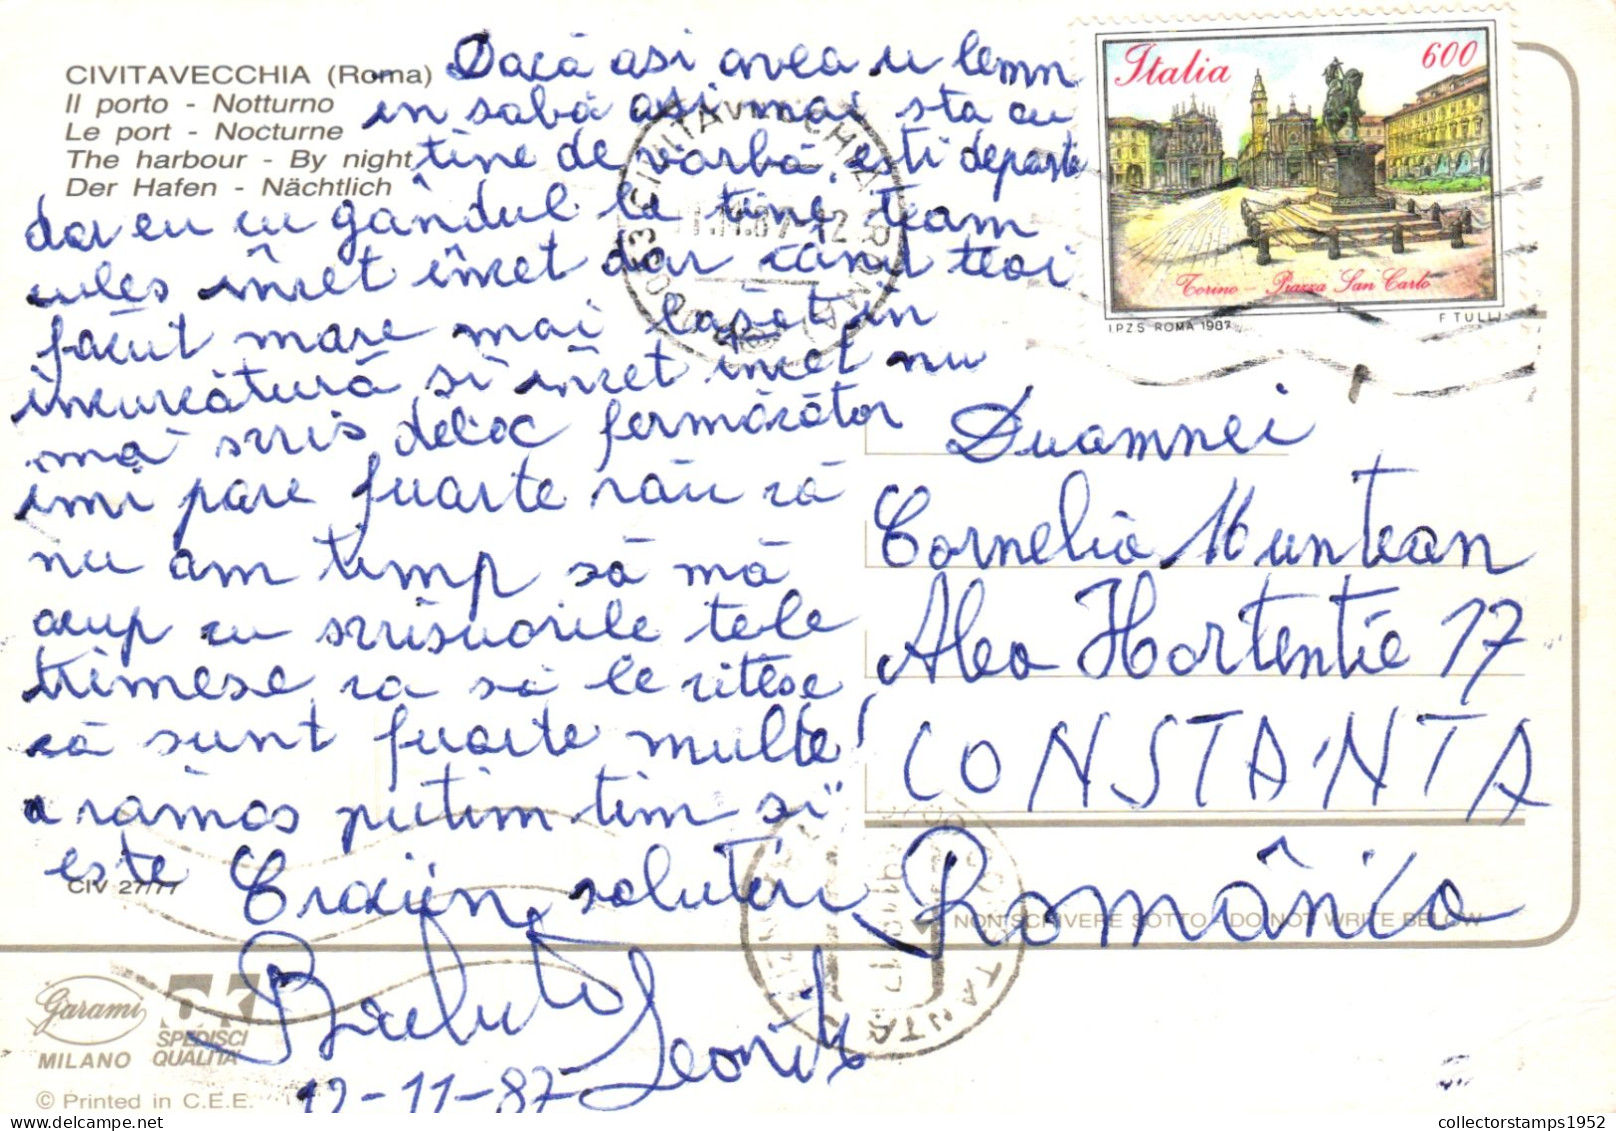 CIVITAVECCHIA (Roma)
Il porto - Notturno
Le port - Nocturne
The harbour - By night
Der Hafen - Nächtlich
Dacă asi avea u lemn
in sobă asi mai sta cu
tine de vorbă, esti departe
dar eu cu gândul la tine, team
cules încet încet dar când teoi
făcut mare mai lăsat in
incurcătură si încet incet nu
mă scris deloc fermăcător
imi pare fuarte rău că
nu am timp să mă
acup cu scrisuorile tele
trimese ca să le citesc
că sunt fuarte multe!
a rămas putim tim si
este Craciun, saluturi
12-11-87
Italia
600
Torino - Piazza San Carlo
I.P.Z.S. ROMA 1987
F. TULLI
CIVITAVECCHIA
ROMA
Duamnei
Cornelia Muntean
Alea Hortentie 17
CONSTANTA
România
CIV 27/77
NON SCRIVERE SOTTO - DO NOT WRITE BELOW
Garami
MILANO
SPEDISCI
QUALITA'
© Printed in C.E.E.
collectorstamps1952